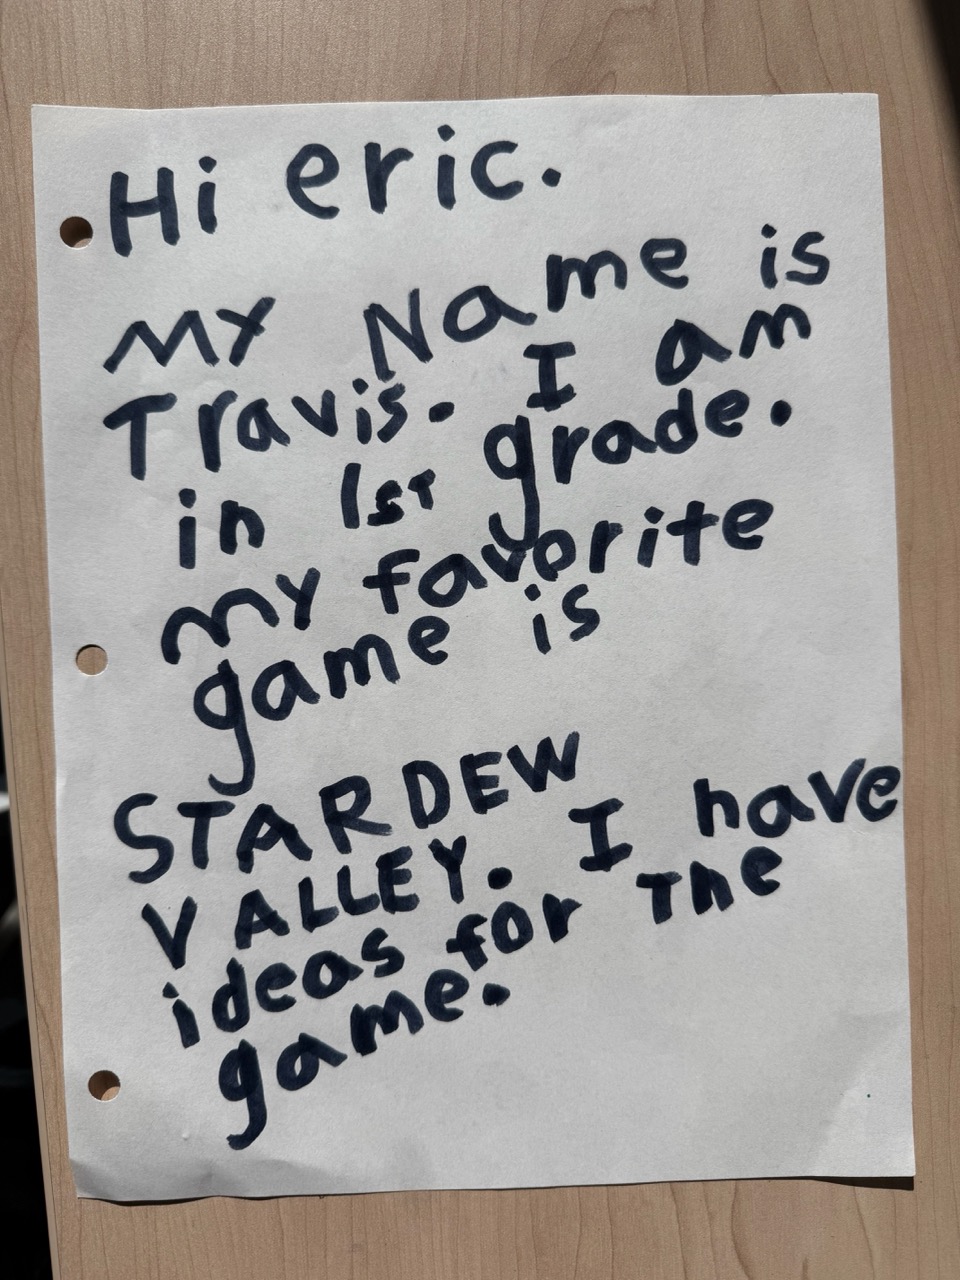 Hi eric.
MY Name is
Travis. I am
in 1st grade.
my favorite
game is
STARDEW
VALLEY. I have
ideas for The
game.